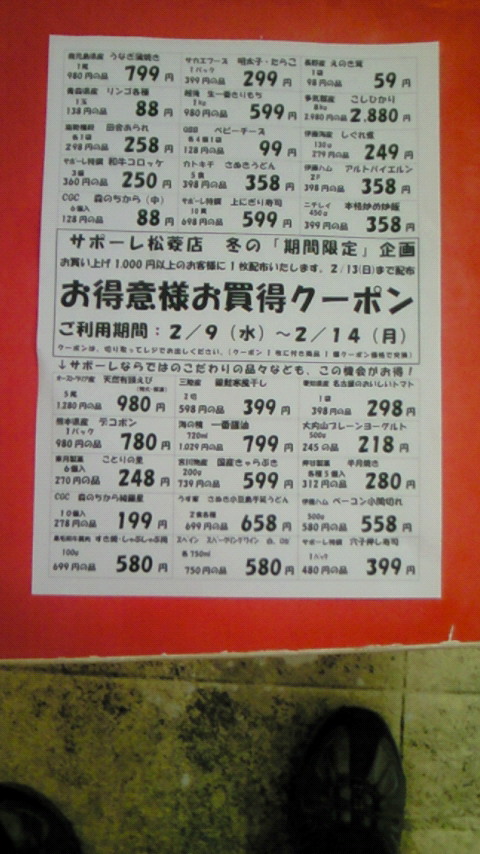 鹿児島県産 うなぎ蒲焼き
1尾
980円の品 799円
サカエフーズ 明太子・たらこ
1パック
399円の品 299円
長野産 えのき茸
1袋
98円の品 59円
青森県産 リンゴ各種
1玉
138円の品 88円
越後 生一番きりもち
1kg
980円の品 599円
多気郡産 こしひかり
8kg
2,980円の品 2,880円
田舎あられ
各1袋
298円の品 258円
QBB ベビーチーズ
各4個1袋
128円の品 99円
伊勢海産 しぐれ煮
130g
279円の品 249円
サポーレ特撰 和牛コロッケ
3個
360円の品 250円
カトキチ さぬきうどん
5食
398円の品 358円
伊藤ハム アルトバイエルン
2P
398円の品 358円
CGC 森のちから（中）
6個入
128円の品 88円
サポーレ特撰 上にぎり寿司
10貫
698円の品 599円
ニチレイ 本格炒め炒飯
450g
399円の品 358円
サポーレ松菱店 冬の「期間限定」企画
お買い上げ1,000円以上のお客様に1枚配布いたします。2/13(日)まで配布
お得意様お買得クーポン
ご利用期間：2／9（水）～2／14（月）
クーポンは、切り取ってレジでお出しください。（クーポン1枚に付き商品1個クーポン価格で交換）
↓サポーレならではのこだわりの品々なども、この機会がお得！
オーストラリア産 天然有頭えび
5尾
1,280円の品 980円
三陸産 銀鮭寒風干し
2切
598円の品 399円
愛知県産 名古屋のおいしいトマト
1袋
398円の品 298円
熊本県産 デコポン
1パック
980円の品 780円
海の精 一番醤油
720ml
1,029円の品 799円
大内山プレーンヨーグルト
500g
245円の品 218円
ことりの里
6個入
270円の品 248円
国産きゃらぶき
200g
739円の品 599円
半月焼き
各種5個入
312円の品 280円
CGC 森のちから純輝星
10個入
278円の品 199円
さぬき小豆島手延うどん
2食各種
699円の品 658円
伊藤ハム ベーコン小間切れ
500g
580円の品 558円
すき焼・しゃぶしゃぶ用
100g
699円の品 580円
スペイン スパークリングワイン 白、ロゼ
各750ml
750円の品 580円
サポーレ特撰 穴子押し寿司
1パック
480円の品 399円